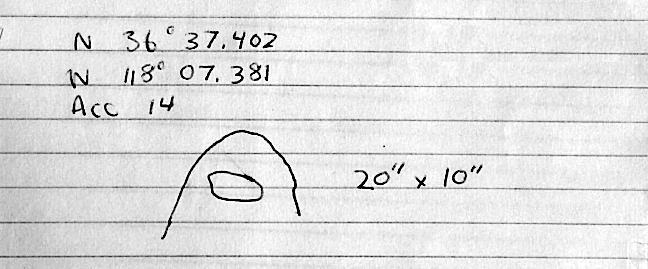 N 36° 37.402
W 118° 07.381
Acc 14
20" x 10"